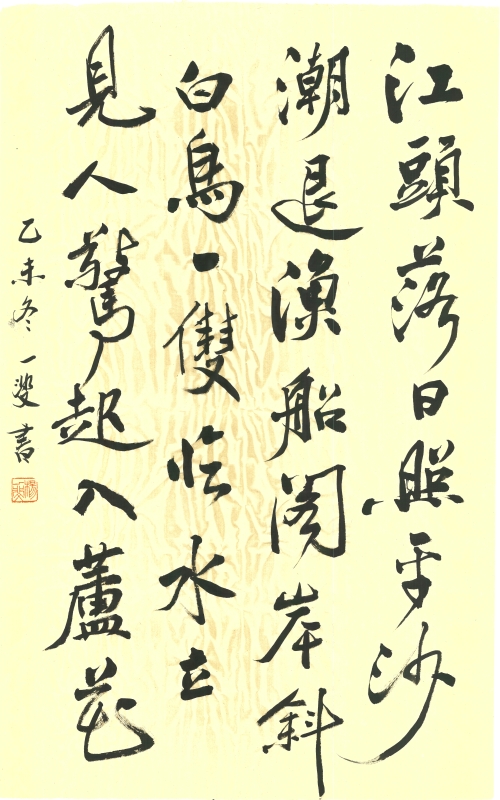 江頭落日照平沙
潮退漁船閣岸斜
白鳥一雙臨水立
見人驚起入蘆花
乙未冬一書